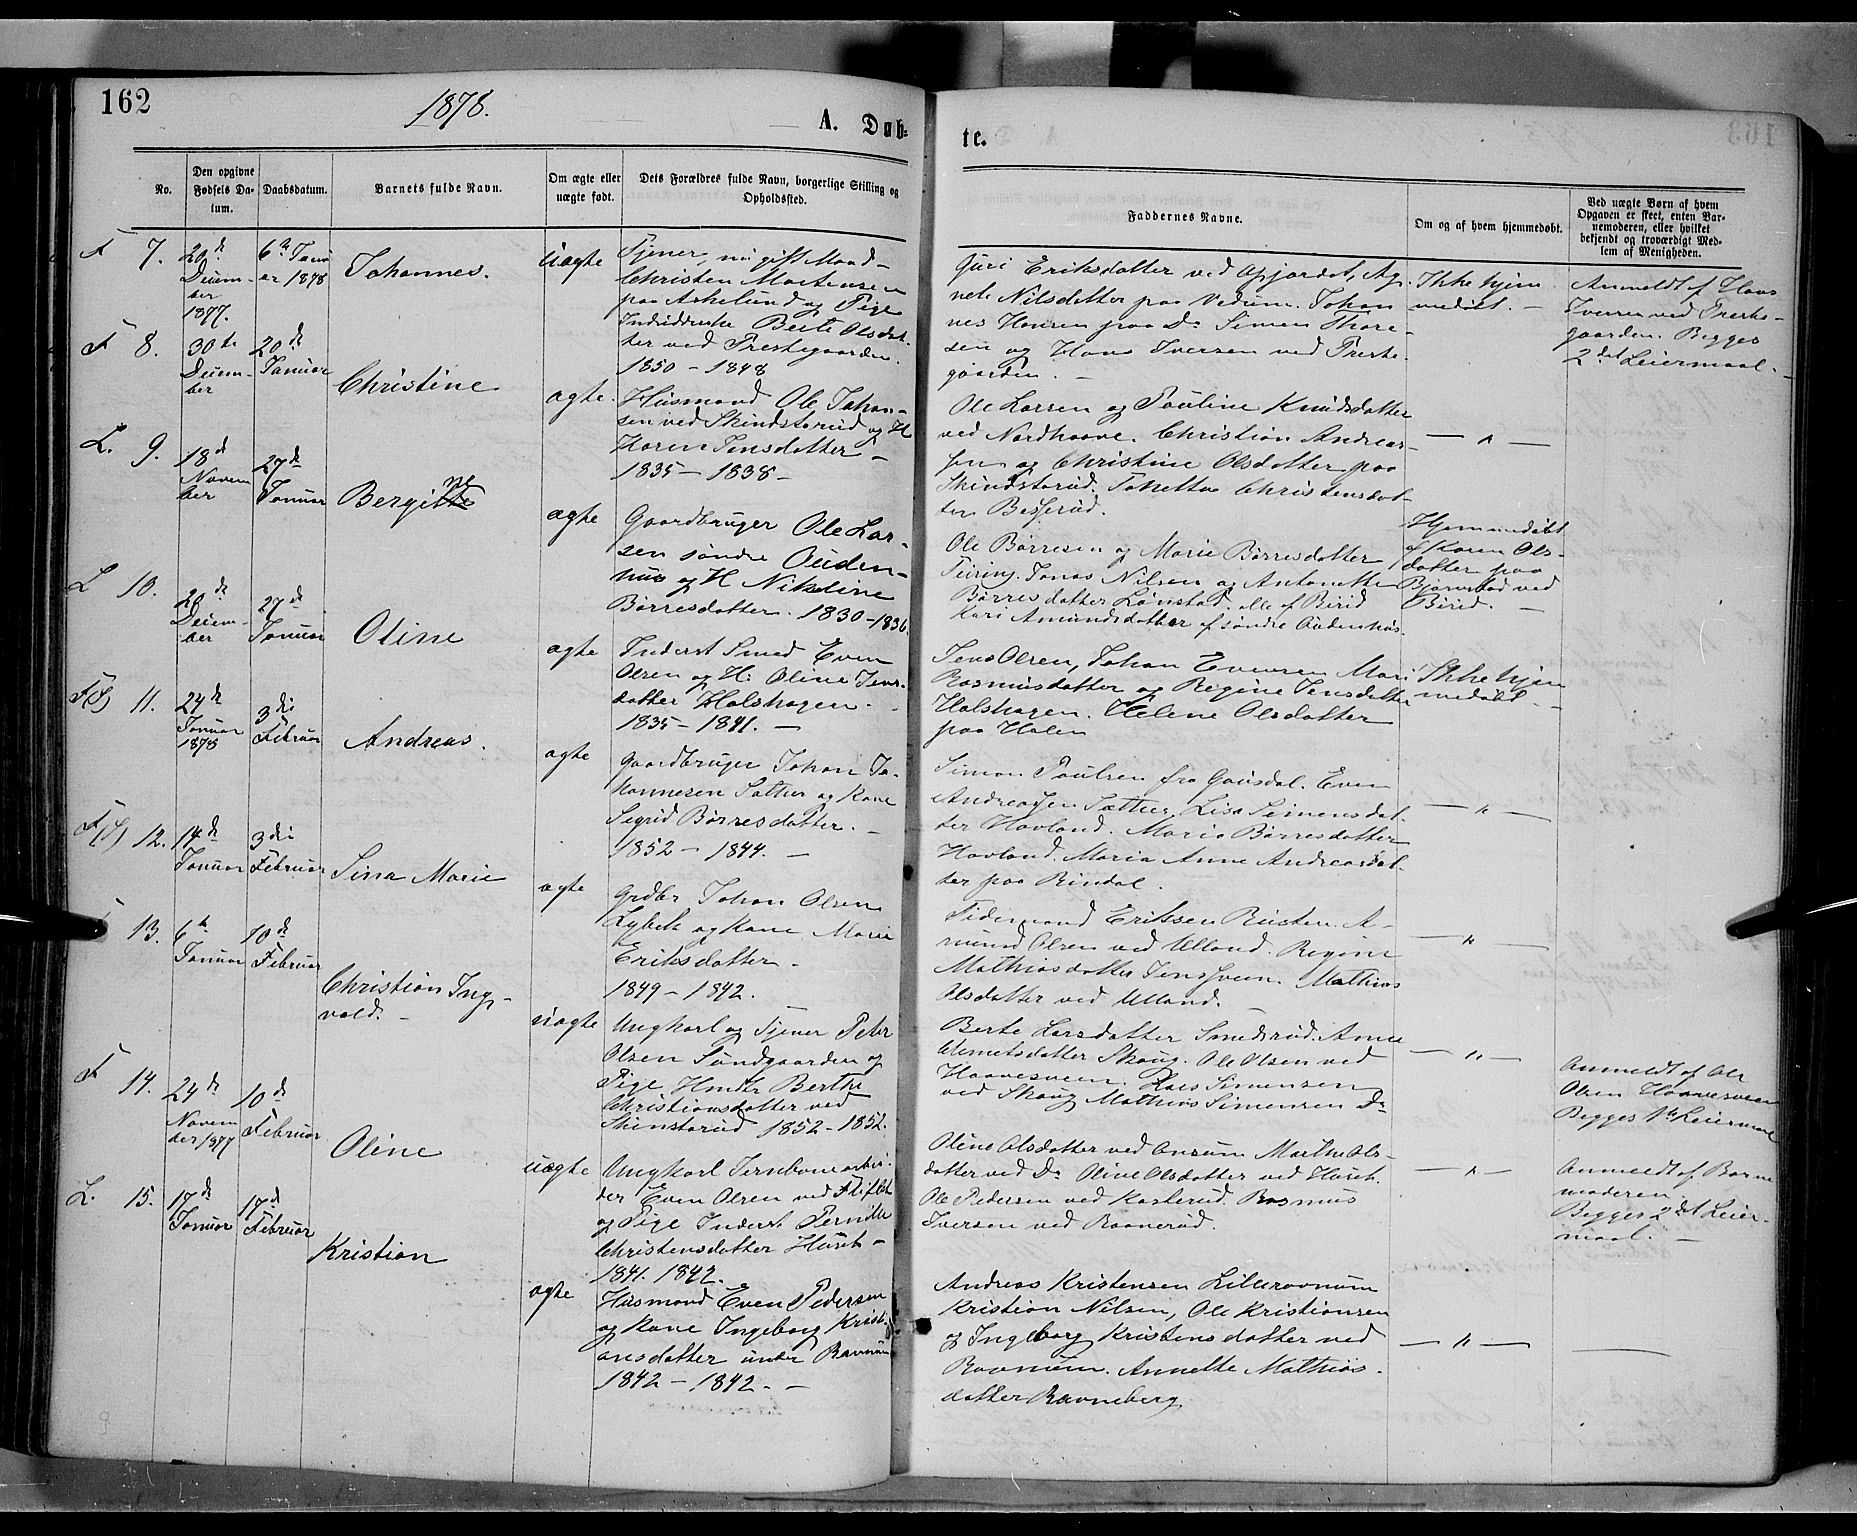 162
1878.
A. Døb-
te.
No.
Den opgivne Fødsels Da-
tum.
Daabsdatum.
Barnets fulde Navn.
Om ægte eller
uægte født.
Dets Forældres fulde Navn, borgerlige Stilling og
Opholdssted.
Faddernes Navne.
Om og af hvem hjemmedøbt.
Ved uægte Børn af hvem
Opgaven er skeet, enten Bar-
nemoderen, eller hvilket
bekjendt og troværdigt Med-
lem af Menigheden.
F 7.
20de
Decem-
ber
1877.
6te Janu
ar 1878
Johannes.
uægte
Tjener, nu gift Mand
Christen Mortensen
paa Askelund og Pige
Berte Olsdat
ter ved Prestegaarden.
1850 - 1848
Guri Eriksdatter ved
nete Nilsdatter paa Vedum. Johan
nes Hansen paa Do Simen Thore-
sen og Hans Iversen ved Preste-
gaarden. -
Ikke hjem
medøbt. -
Anmeldt af Hans
Iversen ved Preste-
gaarden. Begges
2det Leiermaal. -
F 8.
30te
Decem-
ber
20de
Januar
Christine
ægte.
Husmand Ole Johan-
sen ved Skindstarud og H
Karen Jensdatter -
1835 - 1838 -
Ole Larsen og Pauline Knudsdatter
ved Nordhaave. Christian Andreas-
sen og Christine Olsdatter paa
Skindstarud. Tonetta Christensdat-
ter Besserud.
— " —
L. 9.
18de
Novem
ber
27de
Januar
Bergitte
ne
ægte
Gaardbruger Ole Lar-
sen søndre Ouden-
hus og H Nikoline
Børresdatter. 1830 - 1836
Ole Børresen og Marie Børresdatter
Jonas Nilsen og Antonette
Børresdatter Lønstad. alle af Birid
Kari Amundsdatter af søndre Oudenhus.
Hjemmedøbt
af Karen Ols-
datter paa
Bjørnstad ved
Birid. -
L 10.
20de
Decem-
ber
27de
Januar
Oline
ægte
Inderst Smed Even
Olsen og H: Oline Jens-
datter Holshagen. -
1835 - 1841. -
Jens Olsen, Johan Evensen Mari
Rasmusdatter og Regine Jensdatter
Holshagen. Helene Olsdatter
paa Holen
Ikke hjem
medøbt. -
F(S) 11.
24de
Januar
1878
3die
Februar
Andreas.
ægte
Gaardbruger Johan Jo-
hannesen Sather og Kone
Sigrid Børresdatter. -
1852 - 1844. -
Simon Paulsen fra Gausdal. Even
Andreassen Sæther, Lisa Simensdat-
ter Hovland. Maria Børresdatter
Hovland. Maria Anne Andreasdat-
ter paa Rindal.
— " —
F(S) 12.
14de
Januar
3die
Februar
Sina Marie
ægte
Grdbr Johan Olsen
Lybek og Kone Marie
Eriksdatter. -
1849 - 1842. -
Tidemand Erikssen Rusten. A-
mund Olsen ved Ulland. Regine
Mathiasdatter Jensveen. Mathias
Olsdatter ved Ulland.
— " —
13.
6te
Januar
10de
Februar
Christian Ing-
vald. -
uægte
Ungkarl og Tjener Peter
Olsen Sundgaarden og
Pige Berthe
Christiansdatter ved
Skinstarud 1852 - 1852.
Berte Larsdatter Smedsrud. Anne
Clemetsdatter Skoug. Ole Olsen ved
Haavesveen. Lars Simensen
ved Skoug Mathias Simensen Do
— " —
Anmeldt af Ole
Olsen Haavesveen
Begges 1te Leiermaal
F 14.
24de
Novem
ber 1877
10de
Februar
Oline
uægte
Ungkarl Jernbanearbei-
der Even Olsen ved
og Pige Inderst Pernille
Christensdatter Huset -
1841. 1842.
Oline Olsdatter ved Onsum Marthe Ols-
datter ved Do Olive Olsdatter ved Huset.
Ole Pedersen ved Kasterud. Rasmus
Iversen ved Ravnerud.
— " —
Anmeldt af Barne
moderen
Begges 2det Leier-
maal. -
L. 15.
17de
Januar
17de
Februar
Kristian
ægte
Husmand Even Pedersen
og Kone Ingeborg Kristi-
ansdatter under Ravnum
1842 - 1842. -
Andreas Kristensen Lilleravnum
Kristian Nilsen, Ole Kristiansen
og Ingeborg Kristensdatter ved
Ravnum. Annette Mathias-
datter Ravneberg
— " —